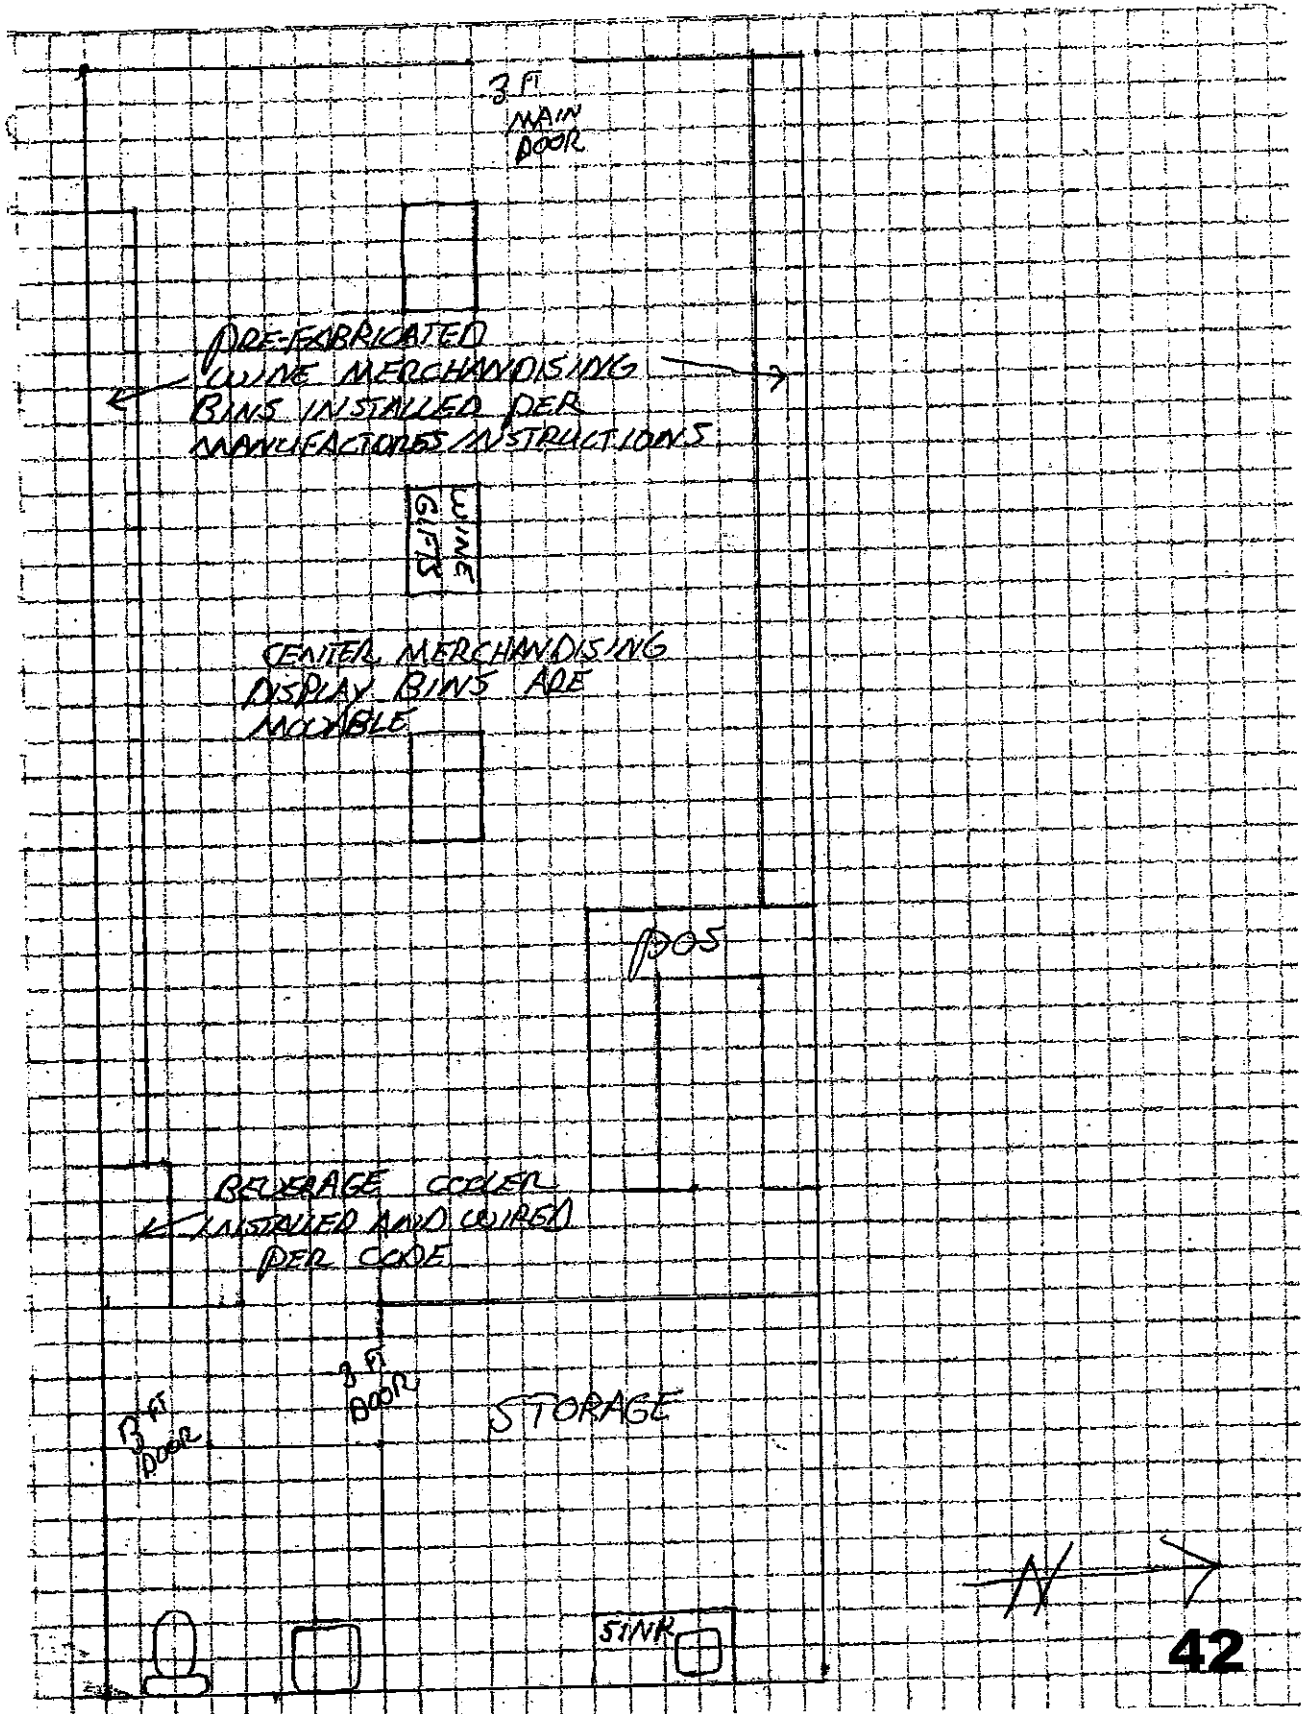 3 FT
MAIN
DOOR
PRE-FABRICATED
WINE MERCHANDISING
BINS INSTALLED PER
MANUFACTORES INSTRUCTIONS
WINE
GIFTS
CENTER MERCHANDISING
DISPLAY BINS ARE
MOVABLE
POS
BEVERAGE COOLER
INSTALLED AND WIRED
PER CODE
3 FT
DOOR
3 FT
DOOR
STORAGE
SINK
N
42